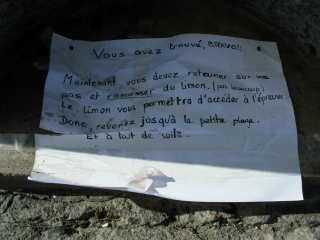 Vous avez trouvé, bravo!!
Maintenant, vous devez retourner sur vos
pas et ramasser du limon, (pas beaucoup)
Le limon vous permettra d'accéder à l'épreuve
Donc, revenez jusqu'à la petite plage.
Et à tout de suite.